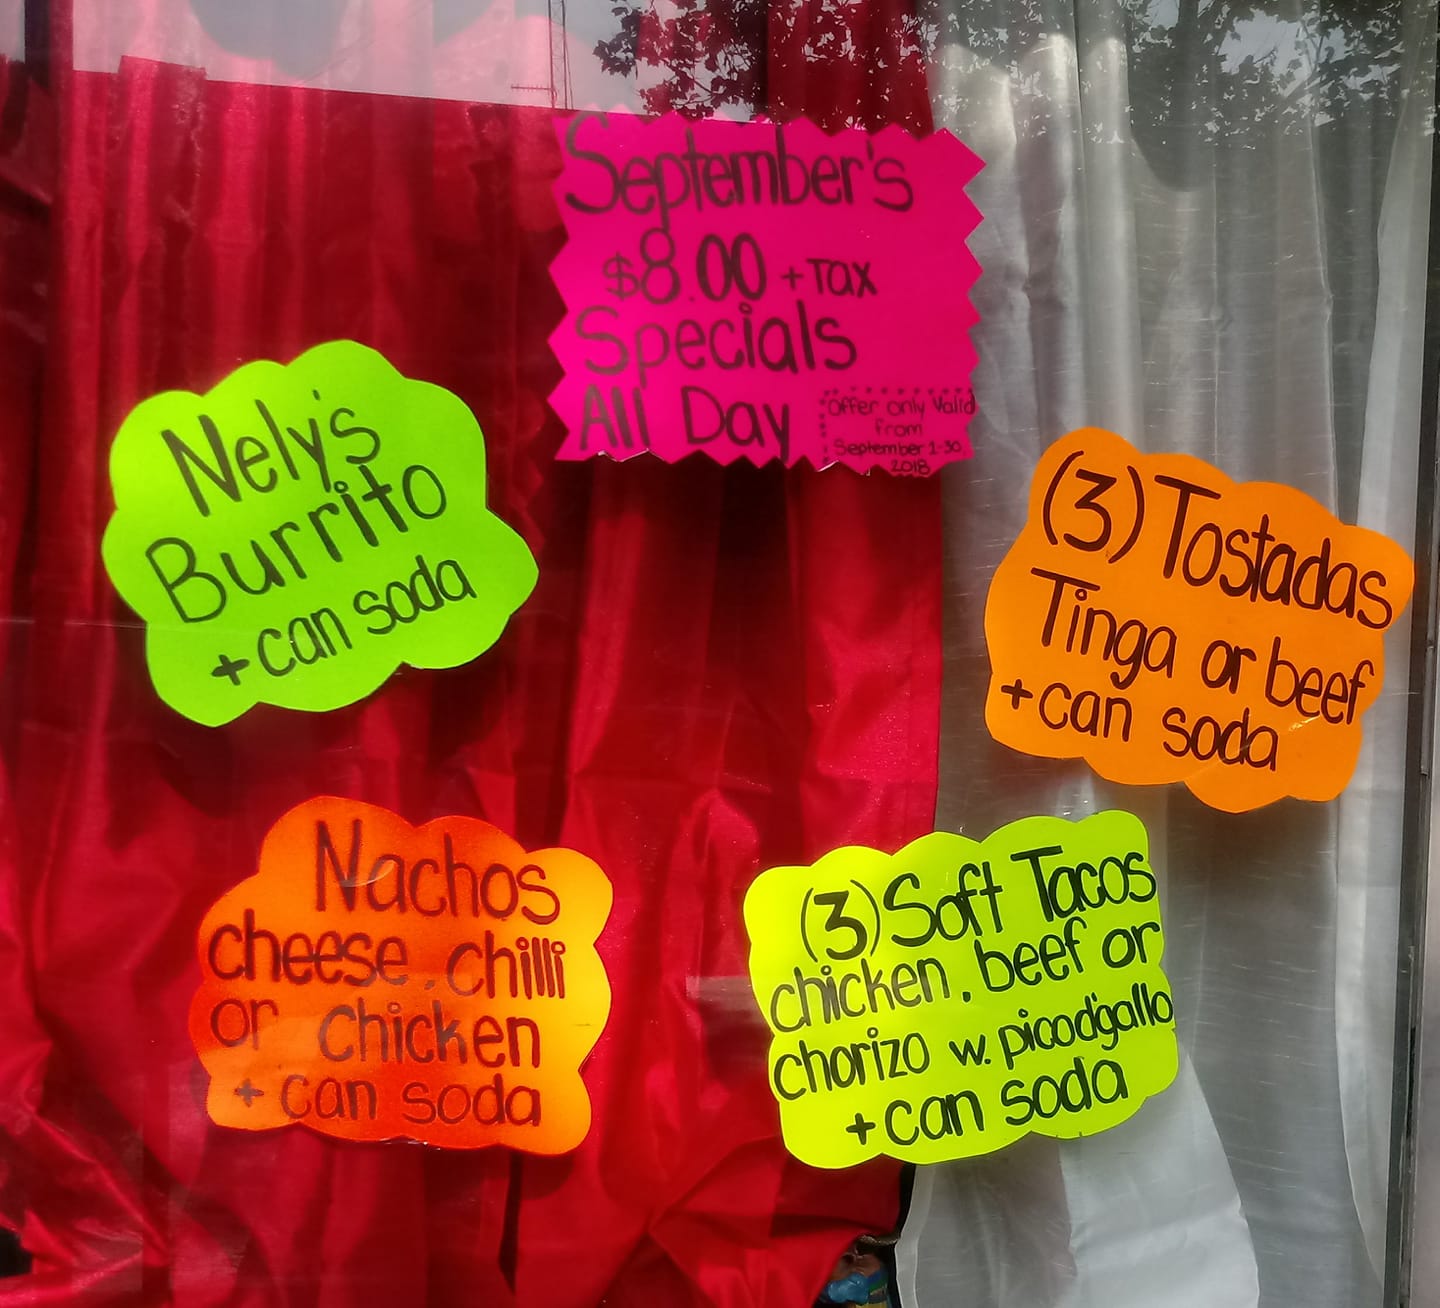 September's
$8.00 + Tax
Specials
All Day
Offer only Valid
from
September 1-30,
2018
Nely's
Burrito
+can soda
(3) Tostadas
Tinga or beef
+can soda
Nachos
cheese, chilli
or chicken
+ can soda
(3) Soft Tacos
chicken, beef or
chorizo w. picod'gallo
+can soda